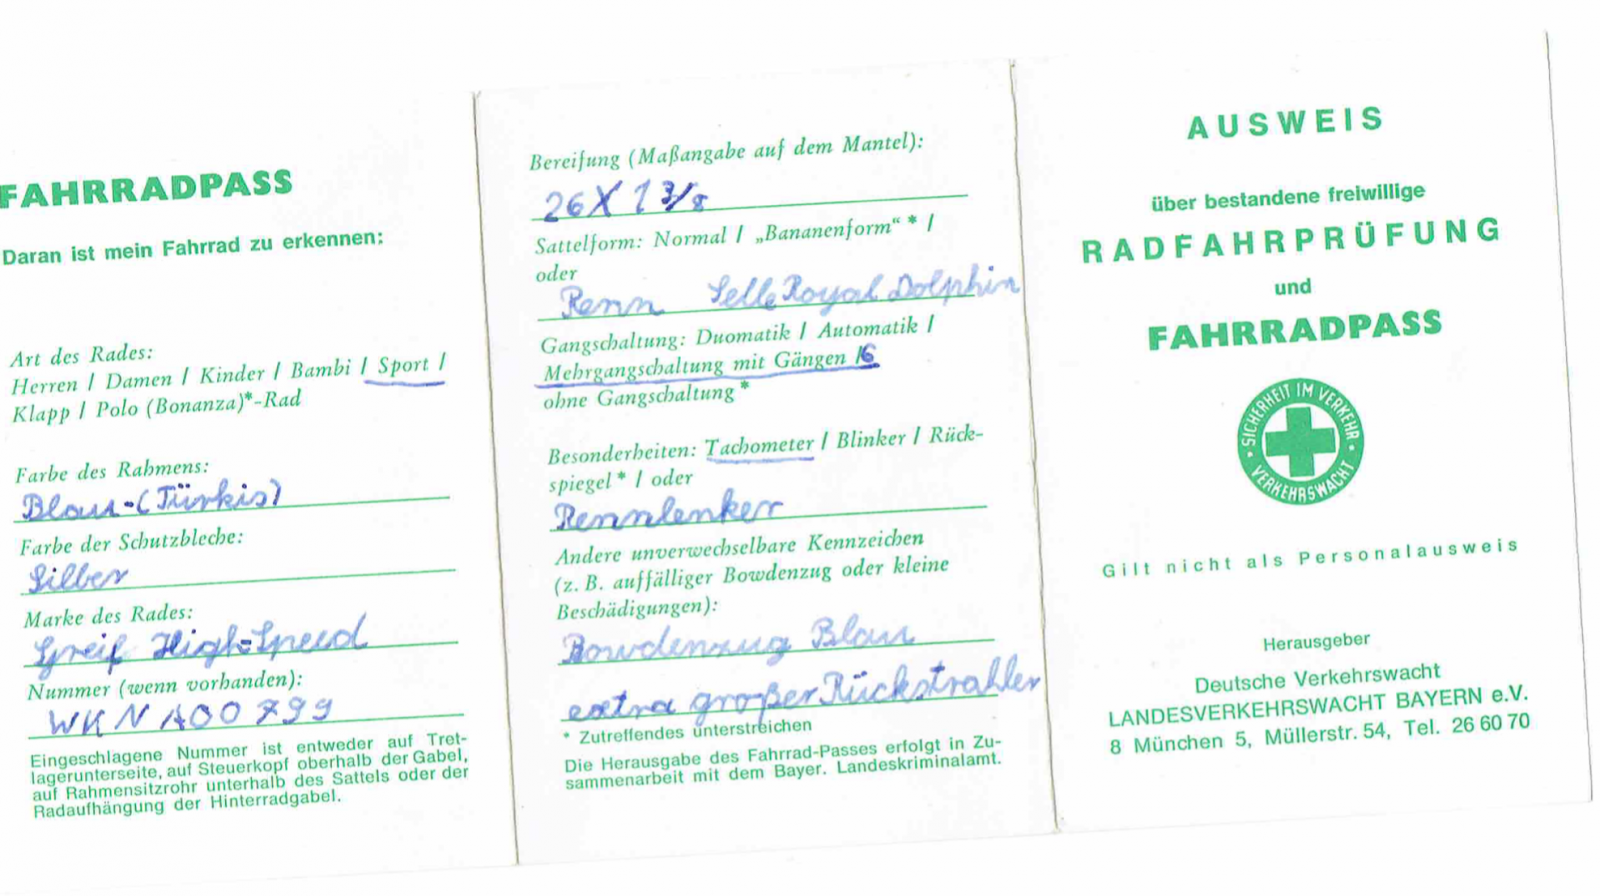 FAHRRADPASS
Daran ist mein Fahrrad zu erkennen:
Art des Rades:
Herren / Damen / Kinder / Bambi / Sport /
Klapp / Polo (Bonanza)*-Rad
Farbe des Rahmens:
Blau-(Türkis)
Farbe der Schutzbleche:
Silber
Marke des Rades:
Greif High=Speed
Nummer (wenn vorhanden):
WKN A00799
Eingeschlagene Nummer ist entweder auf Tret-
lagerunterseite, auf Steuerkopf oberhalb der Gabel,
auf Rahmensitzrohr unterhalb des Sattels oder der
Radaufhängung der Hinterradgabel.
Bereifung (Maßangabe auf dem Mantel):
26 X 1 3/8
Sattelform: Normal / „Bananenform“ * /
oder
Renn Selle Royal Dolphin
Gangschaltung: Duomatik / Automatik /
Mehrgangschaltung mit Gängen / 6
ohne Gangschaltung *
Besonderheiten: Tachometer / Blinker / Rück-
spiegel * / oder
Rennlenker
Andere unverwechselbare Kennzeichen
(z. B. auffälliger Bowdenzug oder kleine
Beschädigungen):
Bowdenzug Blau
extra großer Rückstrahler
* Zutreffendes unterstreichen
Die Herausgabe des Fahrrad-Passes erfolgt in Zu-
sammenarbeit mit dem Bayer. Landeskriminalamt.
AUSWEIS
über bestandene freiwillige
RADFAHRPRÜFUNG
und
FAHRRADPASS
SICHERHEIT IM VERKEHR
VERKEHRSWACHT
Gilt nicht als Personalausweis
Herausgeber
Deutsche Verkehrswacht
LANDESVERKEHRSWACHT BAYERN e.V.
8 München 5, Müllerstr. 54, Tel. 26 60 70